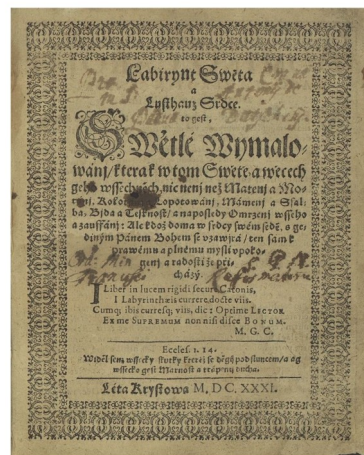 Labirynt Swěta
a
Lusthauz Srdce.
to gest,
Swětlé Wymalo-
wánj/ kterak w tom Swětě a wěcech
geho wssechněch, nic nenj než Matenj a Mo-
Kolo Lopotowánj, Mámenj a Ssal-
ba, Bjda a Teskność/ a naposledy Omrzenj wsseho
a zauffánj: Ale kdož doma w srdcy swém sedě, s ge-
diným Pánem Bohem se vzawjrá/ ten sám k
prawému a plnému mysli vpoko-
genj a radosti že při-
cházý.
I Liber in lucem rigidi secure Catonis,
I Labyrinthæis currere docte viis.
Cumq; ibis curresq; viis, dic: Optime LECTOR
Ex me SUPREMUM non nisi disce BONUM.
M. G. C.
Eccles. 1. 14.
Widěl sem wssecky skutky kteřj se děgj pod sluncem/ a ag
wssecko gest Marnost a trápenj ducha.
Léta Krystowa M. DC. XXXI.